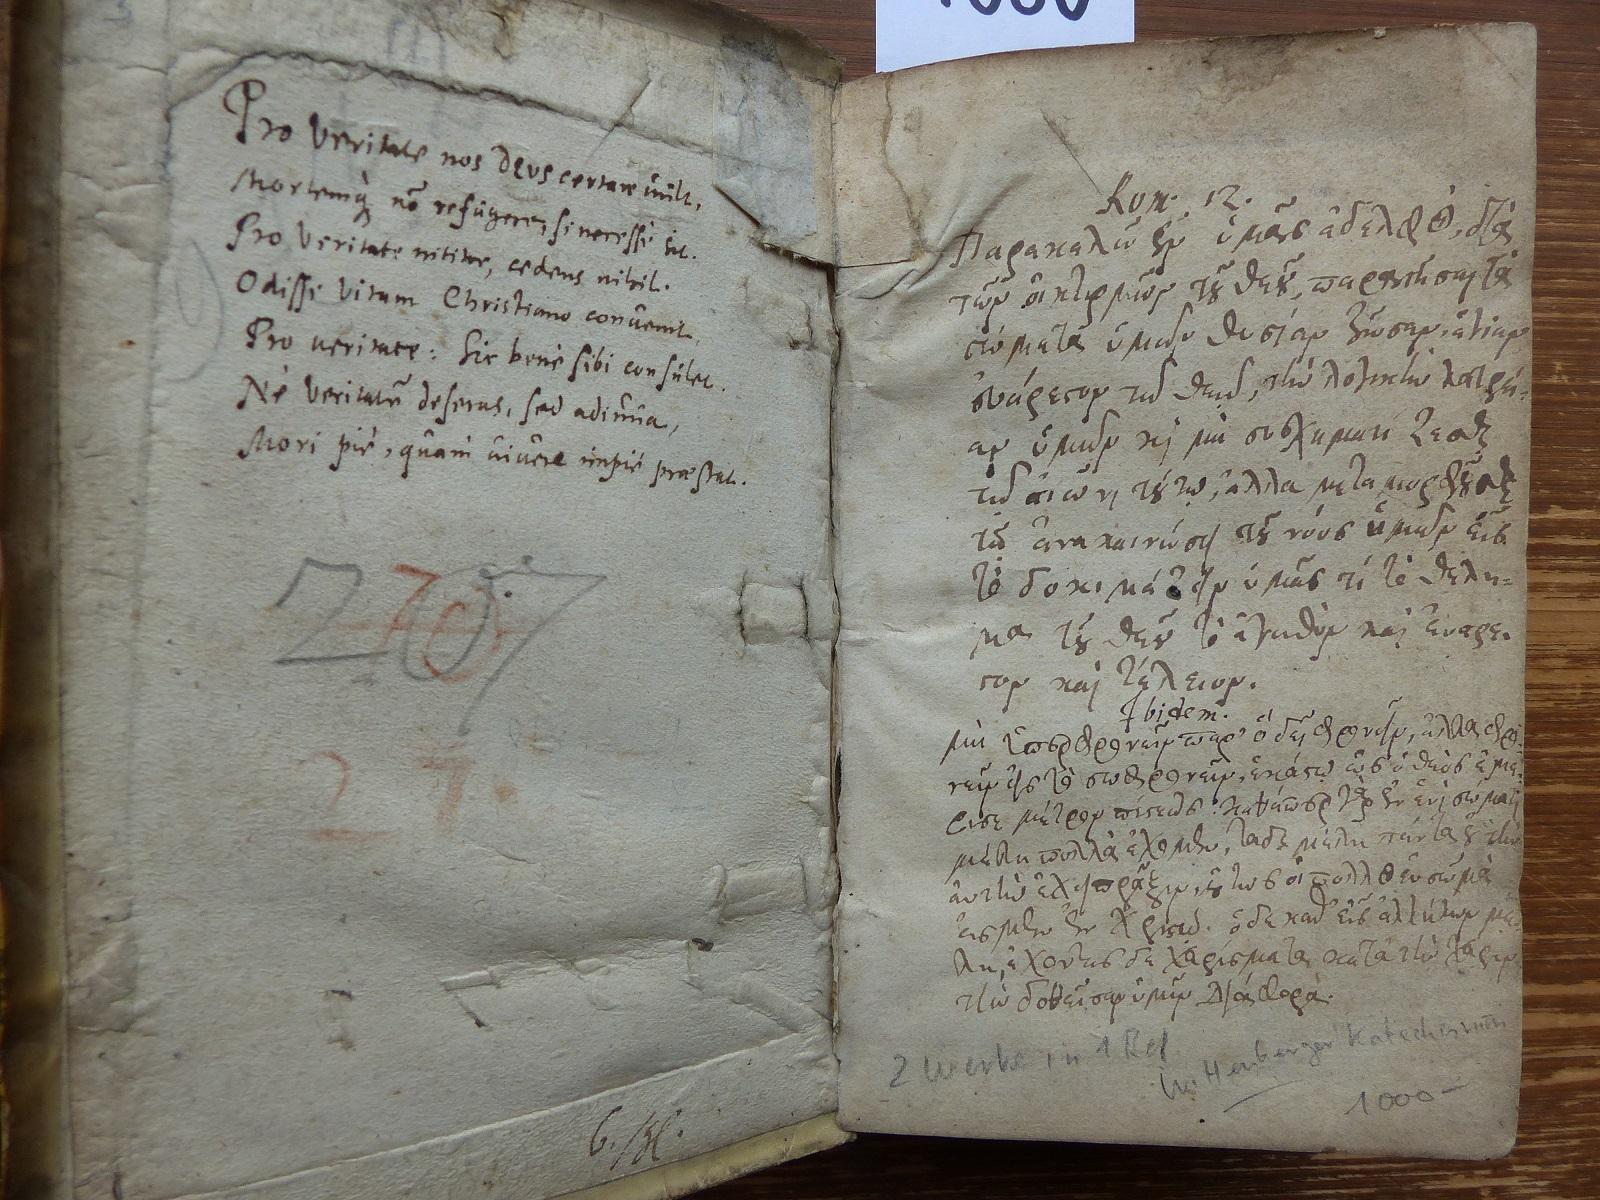 Pro veritate nos Deus certare vult,
Mortemq; nō refugere, si necesse sit.
Pro veritate nititur, cedens nihil.
Odisse vitam Christiano convenit,
Pro veritate: Sic bene sibi consulet.
Nè veritatē deseras, sed
Mori piè, quam vivere impiè præstat.
207
27.
Rom. 12.
Παρακαλῶ ὑμᾶς ἀδελφοὶ, διὰ
τῶν οἰκτιρμῶν τοῦ θεοῦ, παραστῆσαι τὰ
σώματα ὑμῶν θυσίαν ζῶσαν, ἁγίαν
εὐάρεστον τῷ θεῷ, τὴν λογικὴν λατρεί-
αν ὑμῶν καὶ μὴ συσχηματίζεσθε
τῷ αἰῶνι τούτῳ, ἀλλὰ μεταμορφοῦσθε
τῇ ἀνακαινώσει τοῦ νοὸς ὑμῶν εἰς
τὸ δοκιμάζειν ὑμᾶς τί τὸ θέλη-
μα τοῦ θεοῦ τὸ ἀγαθὸν καὶ εὐάρε-
στον καὶ τέλειον.
Ibidem.
μὴ ὑπερφρονεῖν παρ' ὃ δεῖ φρονεῖν, ἀλλὰ φρο-
νεῖν εἰς τὸ σωφρονεῖν, ἑκάστῳ ὡς ὁ θεὸς ἐμέ-
ρισε μέτρον πίστεως. καθάπερ γὰρ ἐν ἑνὶ σώματι
μέλη πολλὰ ἔχομεν, τὰ δὲ μέλη πάντα οὐ τὴν
αὐτὴν ἔχει πρᾶξιν, οὕτως οἱ πολλοὶ ἓν σῶμά
ἐσμεν ἐν Χριστῷ. ὁ δὲ καθ' εἷς ἀλλήλων μέ-
λη, ἔχοντες δὲ χαρίσματα κατὰ τὴν χάριν
τὴν δοθεῖσαν ὑμῖν διάφορα.
2 Werke in 1 Bd
Wittenberger Katechismus
1000-